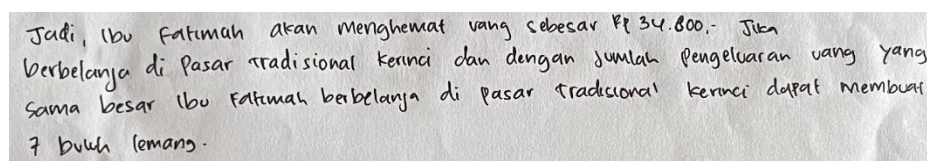 Jadi, Ibu Fatimah akan menghemat uang sebesar Rp 34.800,- Jika
berbelanja di Pasar Tradisional Kerinci dan dengan Jumlah Pengeluaran uang yang
sama besar Ibu Fatimah berbelanja di Pasar Tradisional Kerinci dapat membuat
7 buluh lemang.